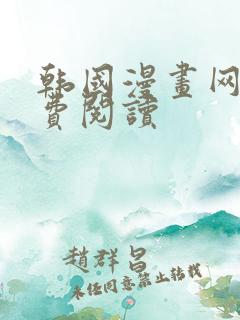 韩国漫畫网
费閱讀
趙群昌
未经同意禁止转载